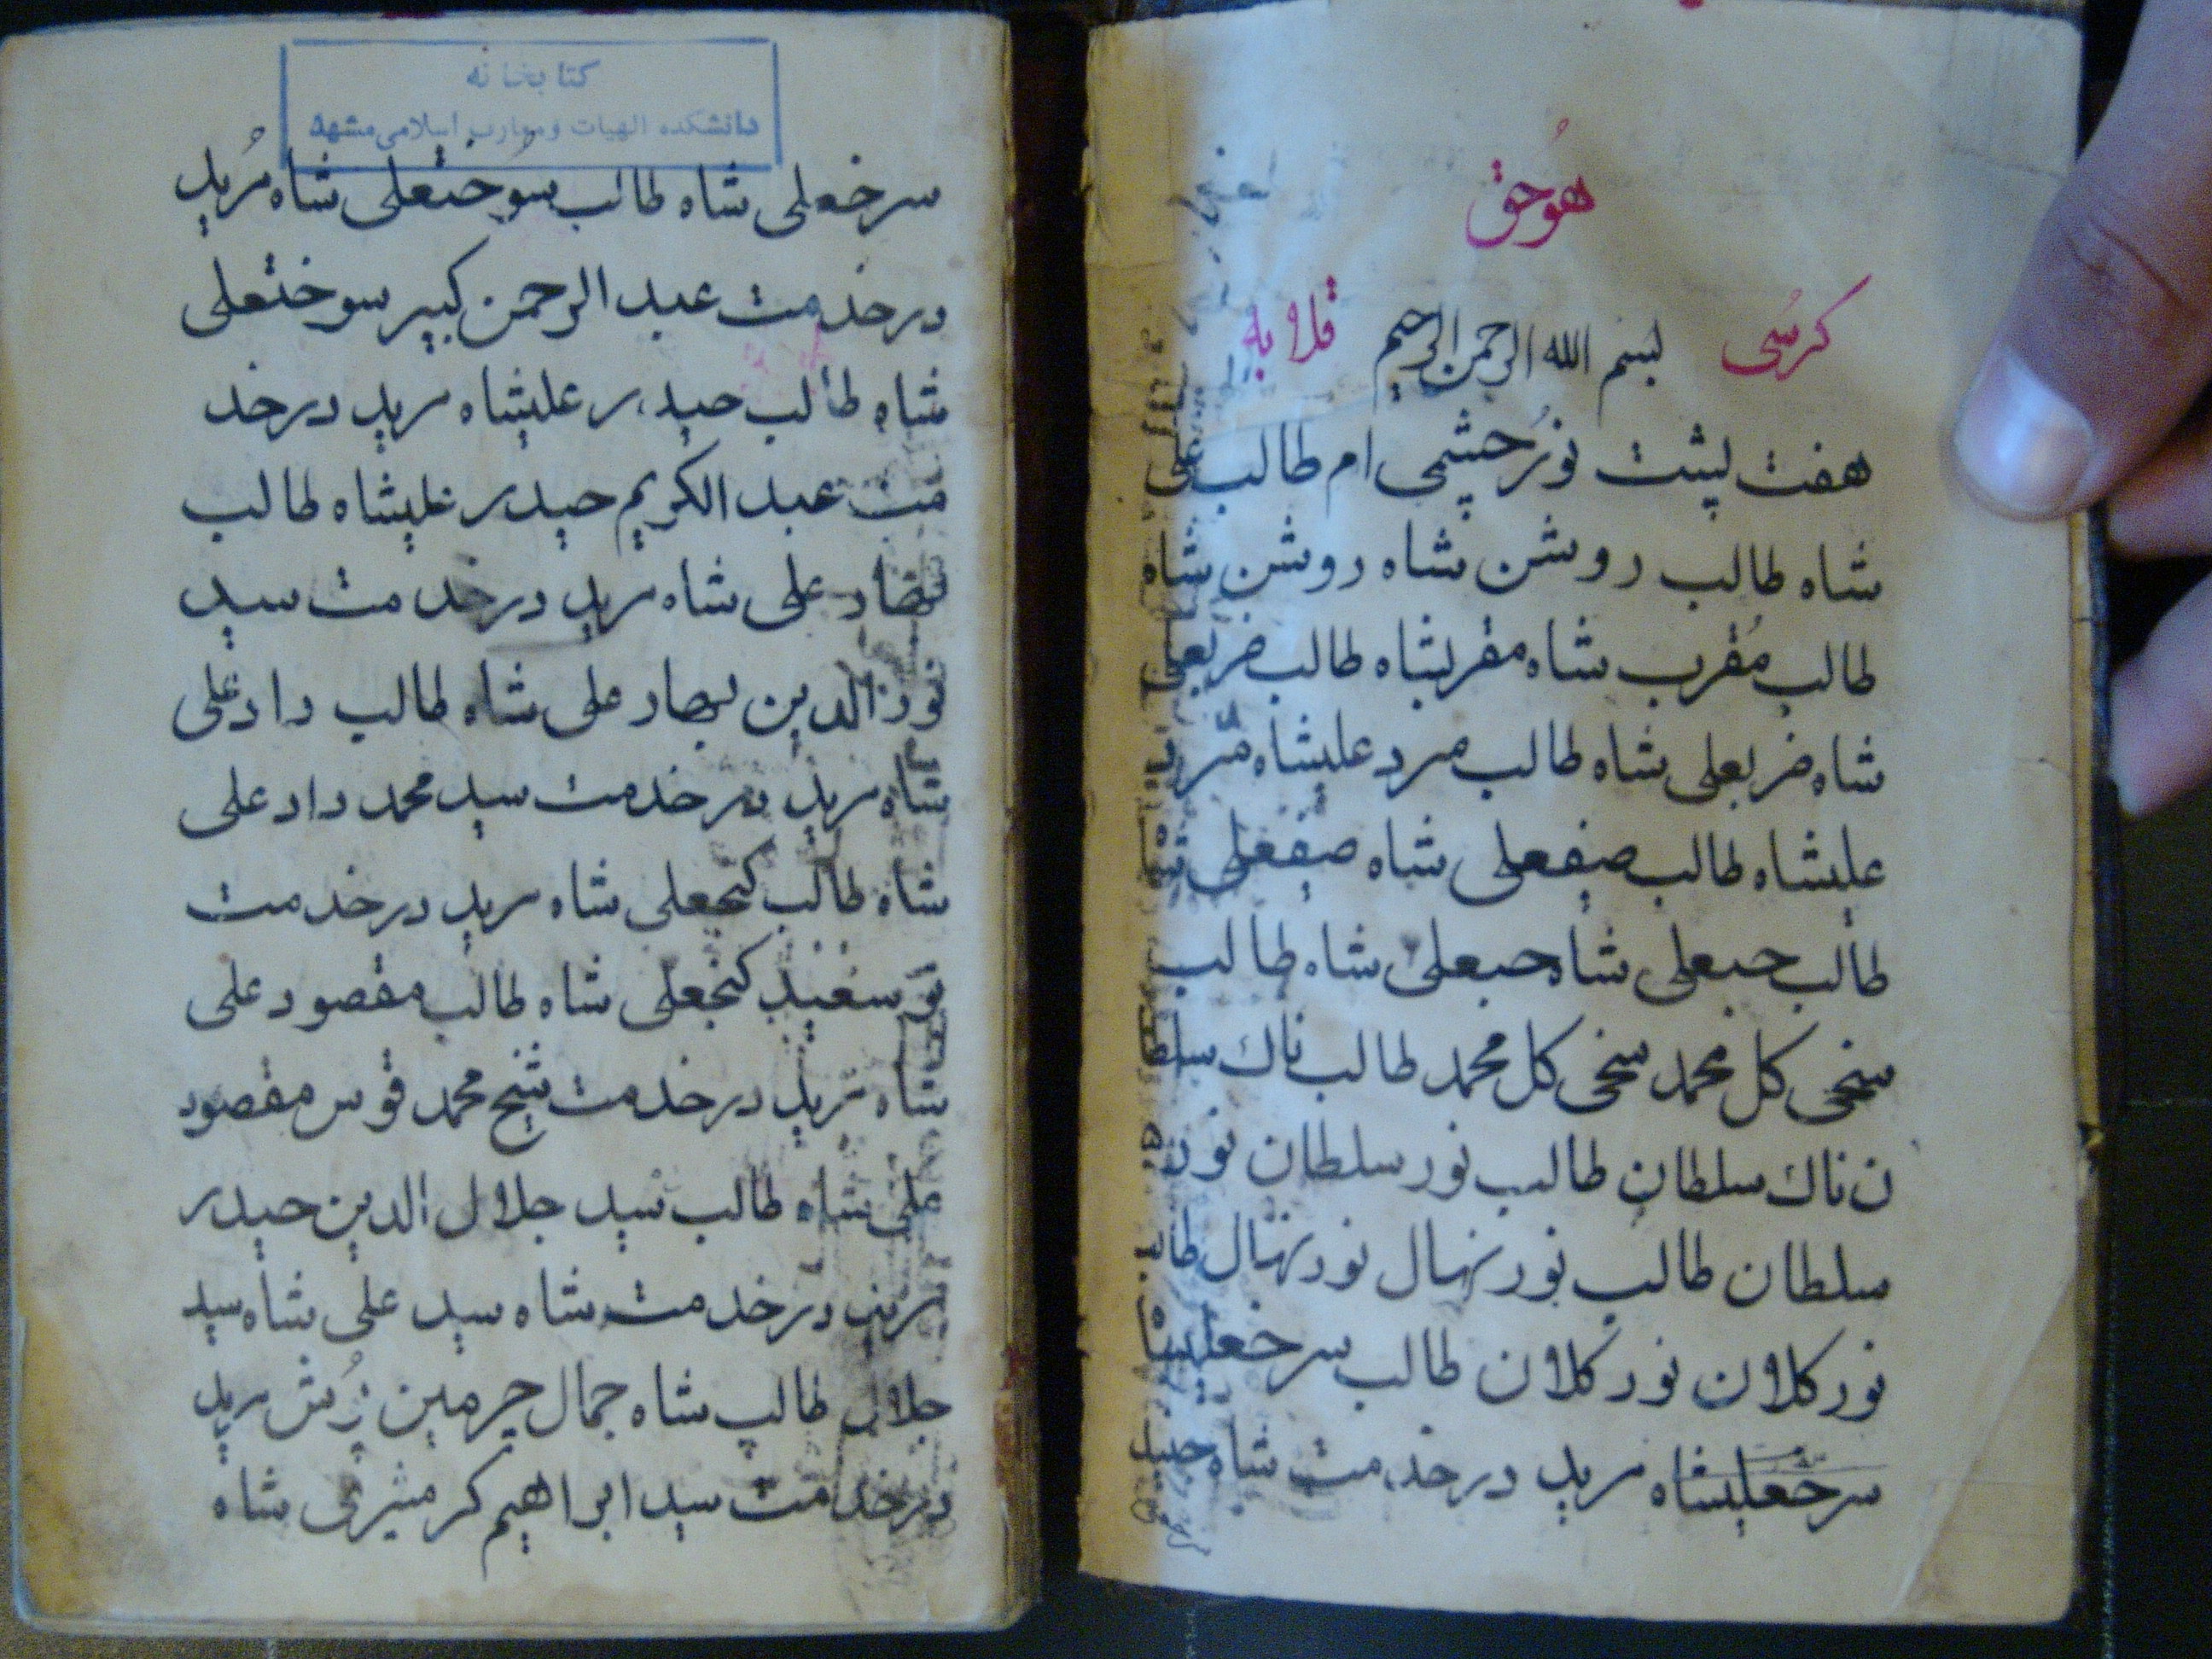 هُو حق
کرسُی بسم الله الرحمن الرحیم قلابه
هفت پشت نورُ چشمی ام طالب علی
شاه طالب روشن شاه روشن شاه
طالب مُقرب شاه مقربشاه طالب ضربعلی
شاه ضربعلی شاه طالب مرد علیشاه مرد
علیشاه طالب صفعلی شاه صفعلی
طالب حبعلی شاه حبعلی شاه طالب
سخی کل محمد سخی کل محمد طالب ناك سلطا
ن ناك سلطان طالب نور سلطان نور
سلطان طالب نور نهال نور نهال طالب
نور کلان نور کلان طالب سرخعلیشا
سرخعلیشاه مرید در خدمت شاه
کتابخانه
دانشکده الهیات و معارف اسلامی مشهد
سرخعلی شاه طالب سوُختعلی شاه مُرید
در خدمت عبد الرحمن کبیر سوختعلی
شاه طالب حیدر علیشاه مرید در خد
مت عبد الکریم حیدر علیشاه طالب
علی شاه مرید در خدمت سید
نور الدین بهار علی شاه طالب داد علی
شاه مرید در خدمت سید محمد داد علی
شاه طالب کنجعلی شاه مرید در خدمت
کنجعلی شاه طالب مقصود علی
شاه مرید در خدمت شیخ محمد قوس مقصود
علی شاه طالب سید جلال الدین حیدر
مرید در خدمت شاه سید علی شاه سید
جلال طالب شاه جمال چرمین پُش مرید
در خدمت سید ابراهیم کرمثیری شاه